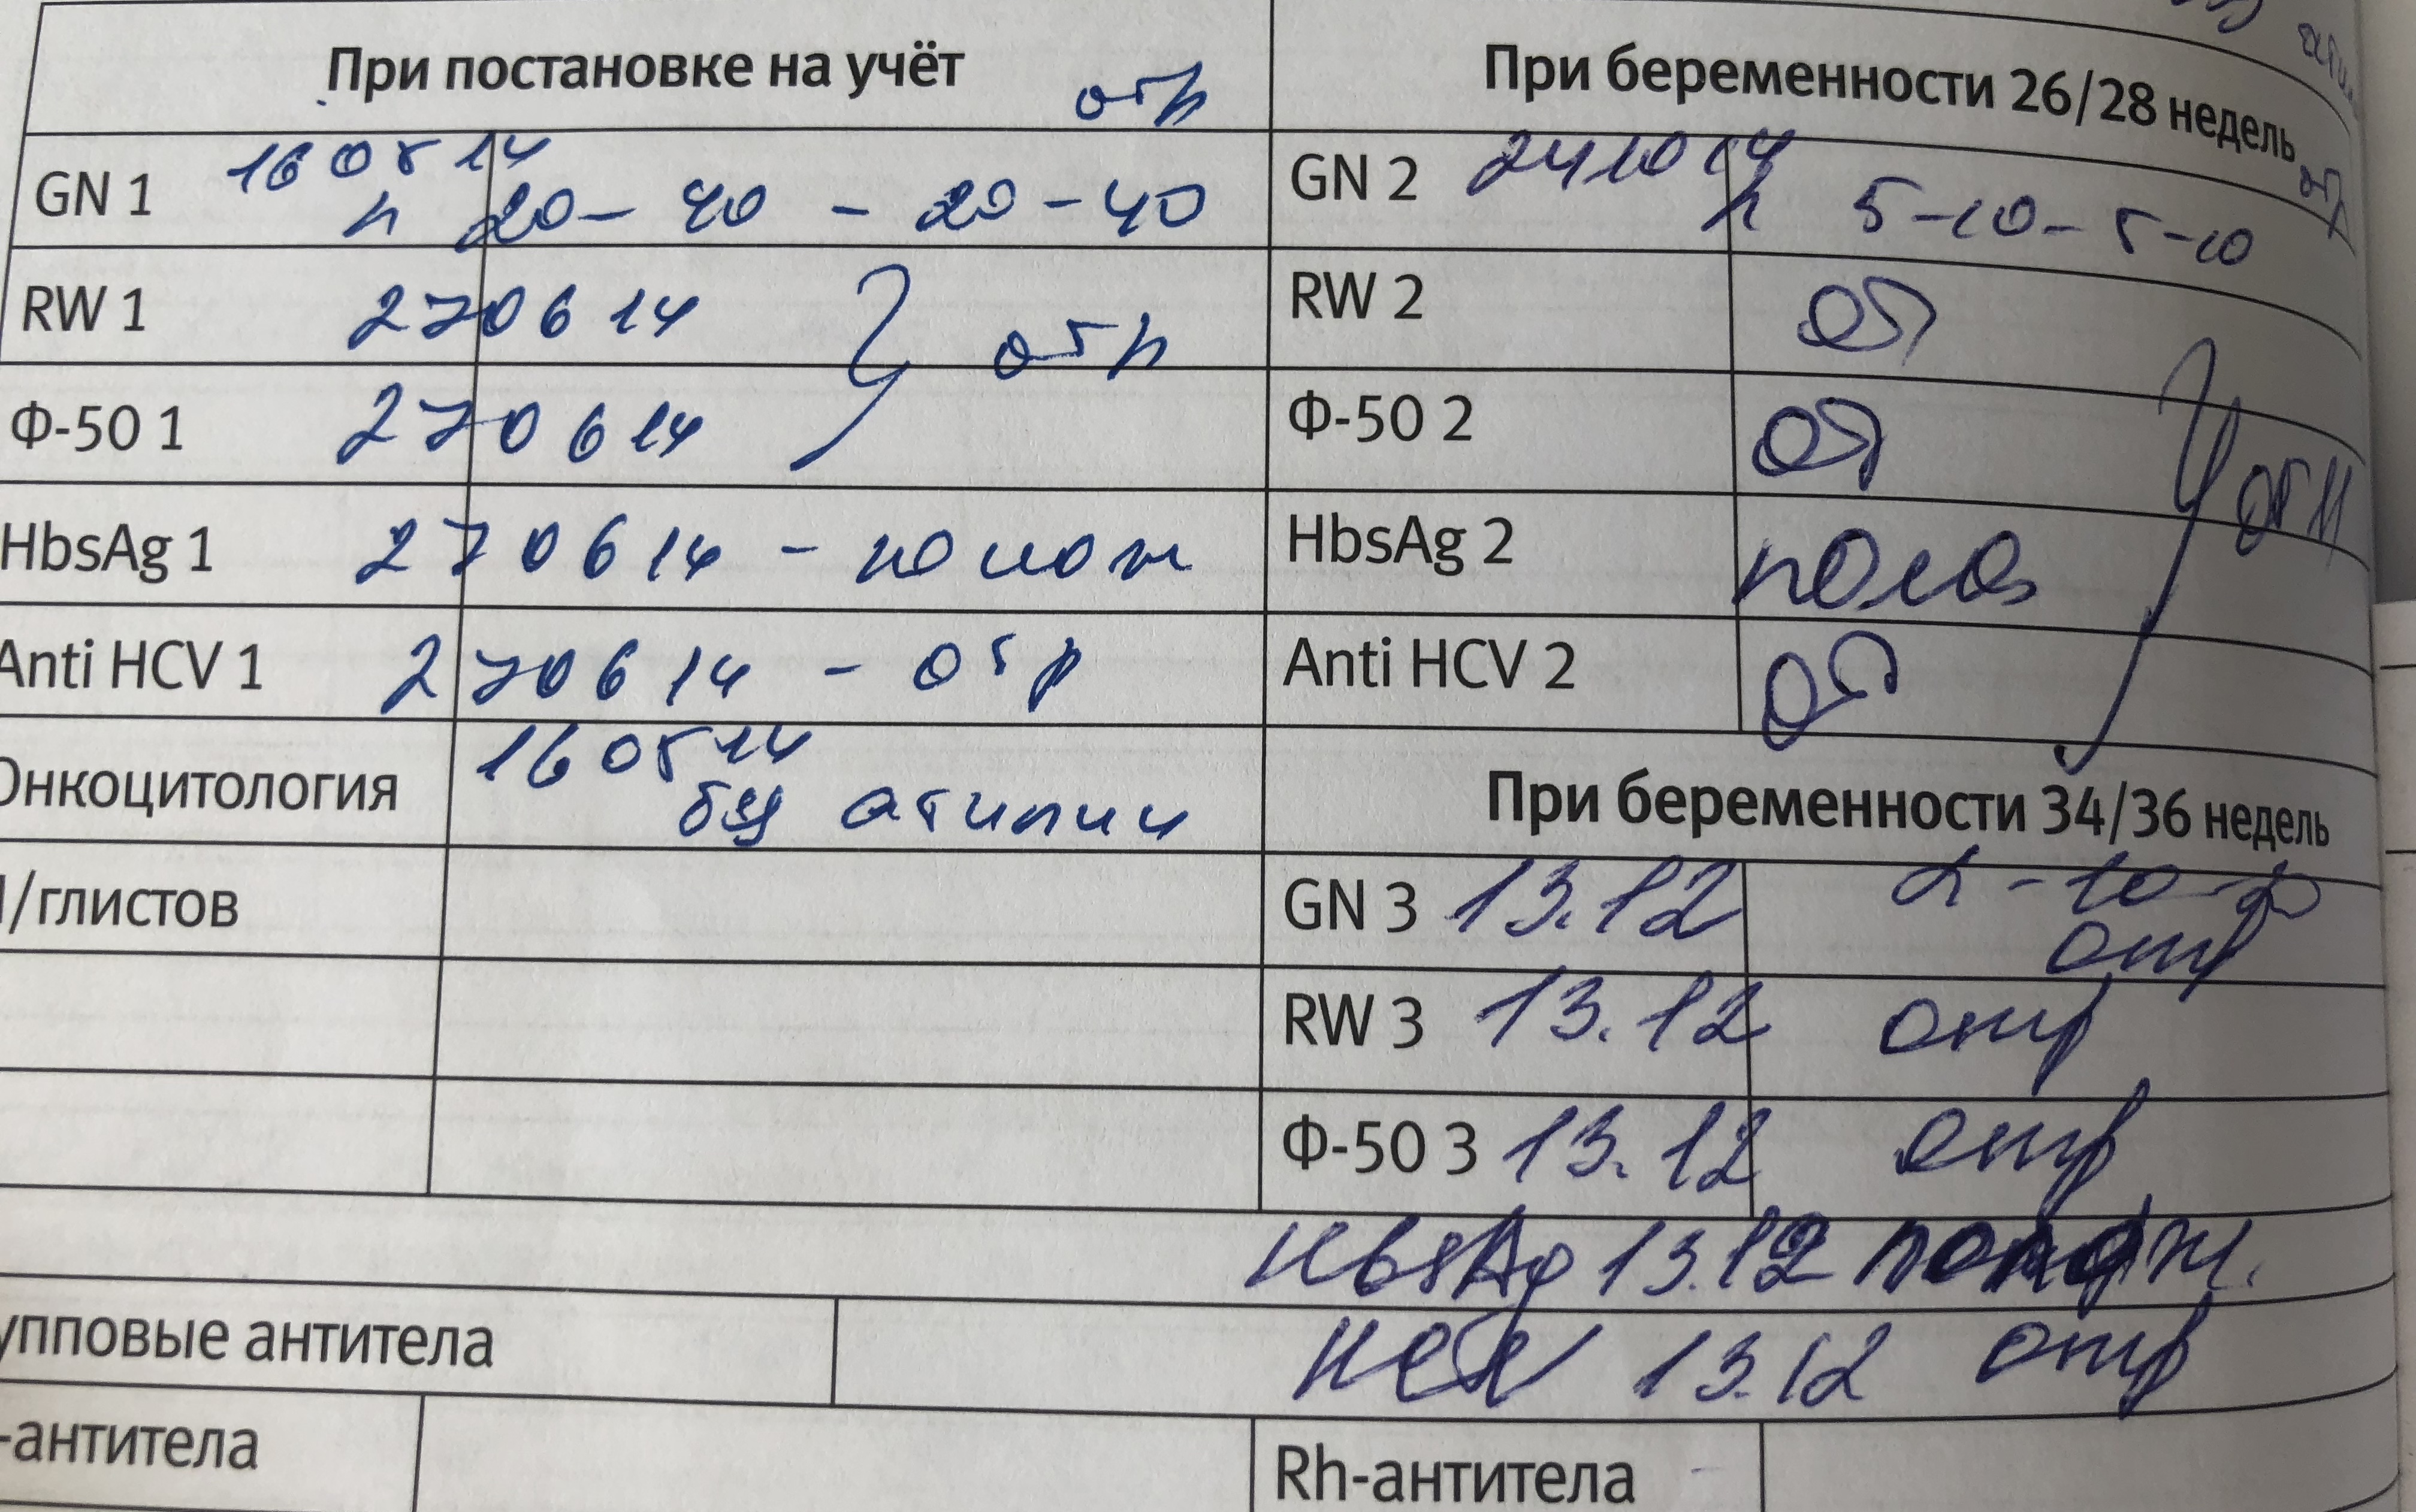 При постановке на учёт отр
GN 1 160514
л 20 - 40 - 20 - 40
RW 1 270614
отр
Ф-50 1 270614
HbsAg 1 270614 - полож
Anti HCV 1 270614 - отр
Онкоцитология 160514
без атипии
/глистов
упповые антитела
-антитела
При беременности 26/28 недель
GN 2 241014 отр
л 5-10-5-10
RW 2
Ф-50 2
HbsAg 2
Anti HCV 2
При беременности 34/36 недель
GN 3 13.12
отр
RW 3 13.12 отр
Ф-50 3 13.12 отр
HbsAg 13.12 полож.
13.12 отр
Rh-антитела